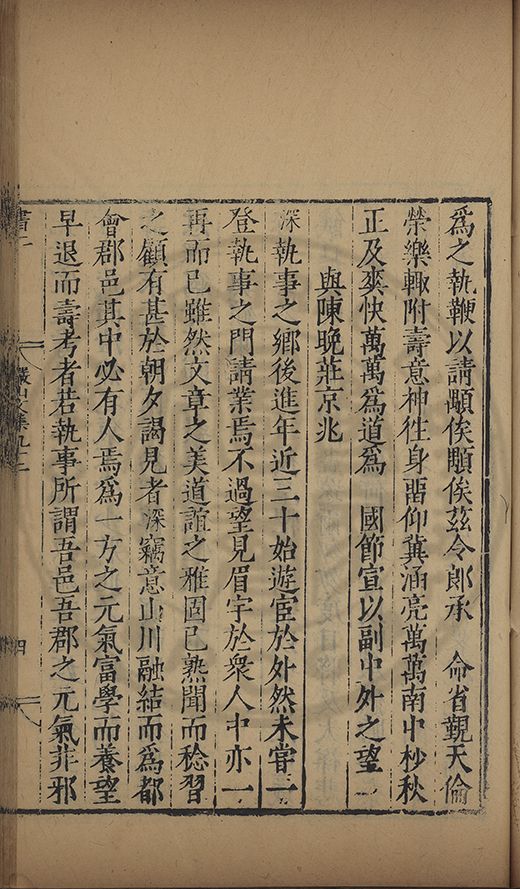 爲之執鞭以請顒俟顒俟茲令郎承　命省覲天倫
榮樂輙附壽意神徃身畱仰冀涵亮萬萬南中杪秋
正及爽快萬萬爲道爲　國節宣以副中外之望
與陳晚莊京兆
深執事之鄉後進年近三十始遊宦於外然未甞一
登執事之門請業焉不過望見眉宇於衆人中亦一
再而已雖然文章之美道誼之雅固已熟聞而稔習
之顧有甚於朝夕謁見者深竊意山川融結而爲都
會郡邑其中必有人焉爲一方之元氣富學而養望
早退而壽考者若執事所謂吾邑吾郡之元氣非邪
書一
儼山文集九十一
四